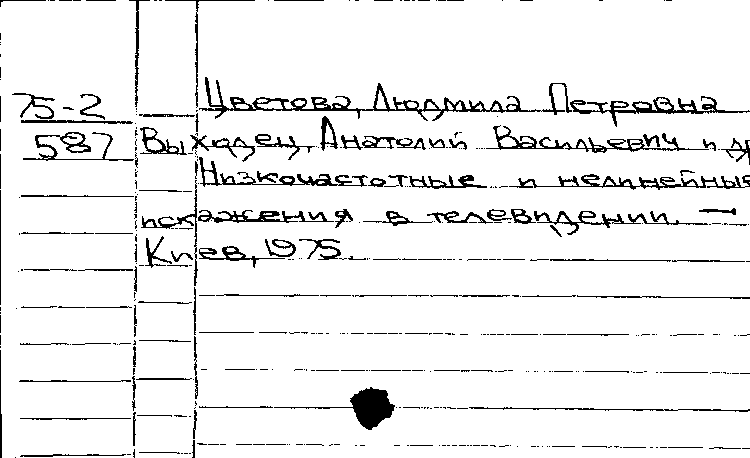 Цветова, Людмила Петровна
75-2
587 Выходец, Анатолий Васильевич и др
Низкочастотные и нелинейные
искажения в телевидении. —
Киев, 1975.